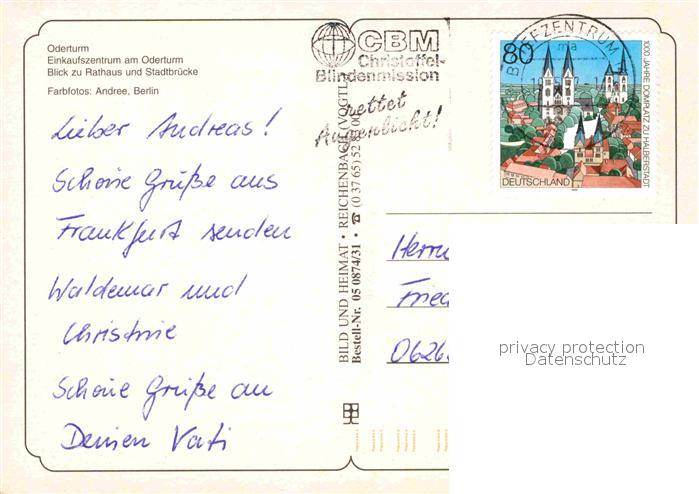 Oderturm
Einkaufszentrum am Oderturm
Blick zu Rathaus und Stadtbrücke
Farbfotos: Andree, Berlin
Lieber Andreas!
Schöne Grüße aus
Frankfurt senden
Waldemar und
Christine
Schöne Grüße an
Deinen Vati
BILD UND HEIMAT · REICHENBACH (VOGTL
Bestell-Nr. 05 0874/31 · ☎ (0 37 65) 52
CBM
Christoffel-
Blindenmission
rettet
Augenlicht!
BRIEFZENTRUM
ma
80
1000 JAHRE DOMPLATZ ZU HALBERSTADT
DEUTSCHLAND
Herrn
Fried
0626
privacy protection
Datenschutz